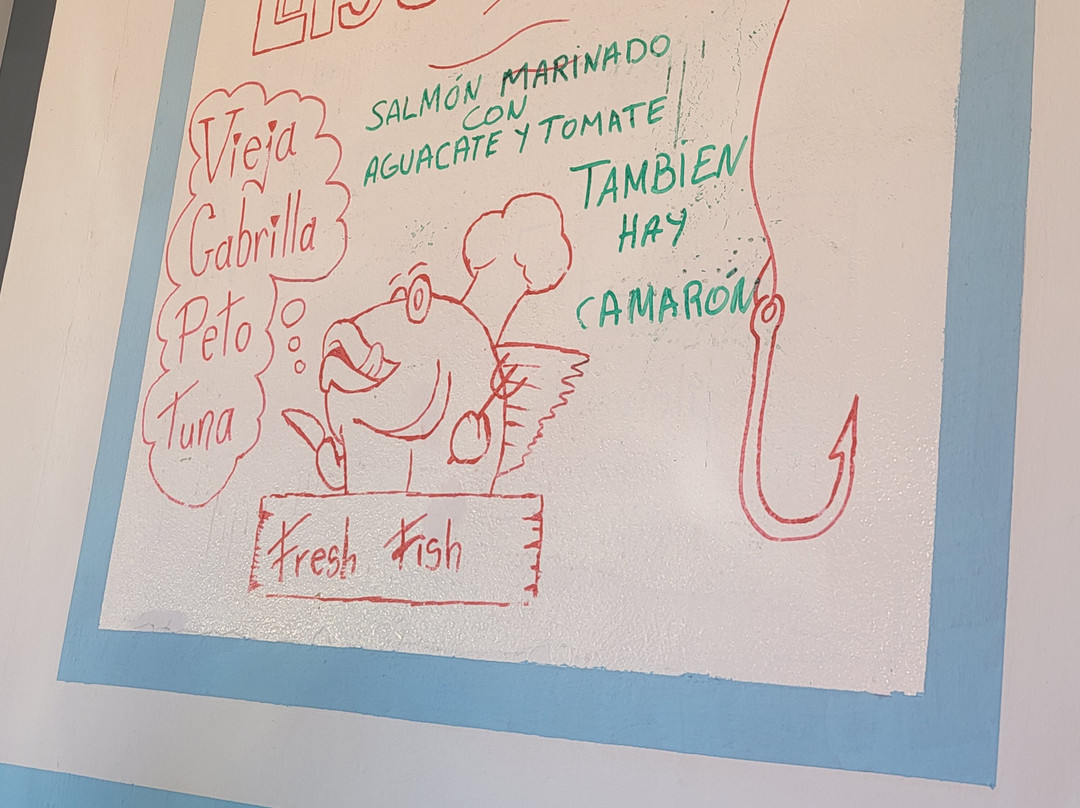 SALMÓN MARINADO
CON
AGUACATE Y TOMATE
TAMBIEN
HAY
CAMARÓN
Vieja
Gabrilla
Peto
Tuna
Fresh Fish